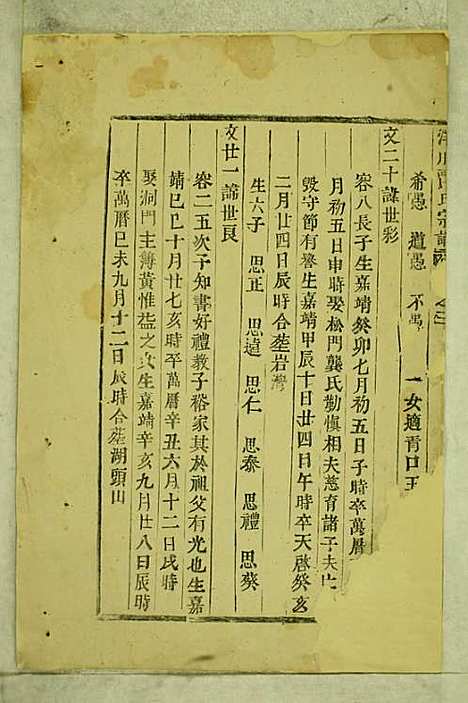 氏宗譜
希愚 道愚 不萬 一女適青口王
文二十諱世彩
容八長子生嘉靖癸卯七月初五日子時卒萬曆
月初五日申時娶松門龔氏勤慎相夫慈育諸子夫亡
毀守節有譽生嘉靖甲辰十日廿四日午時卒天啓癸亥
二月廿四日辰時合塟岩灣
生六子 思正 思遠 思仁 思泰 思禮 思葵
文廿一諱世良
容二五次子知書好禮教子裕家其於祖父有光也生嘉
靖己巳十月廿七亥時卒萬曆辛丑六月十二日戌時
娶洞門主簿黃惟益之女生嘉靖辛亥九月廿八日辰時
卒萬曆巳未九月十二日辰時合塟湖頭山